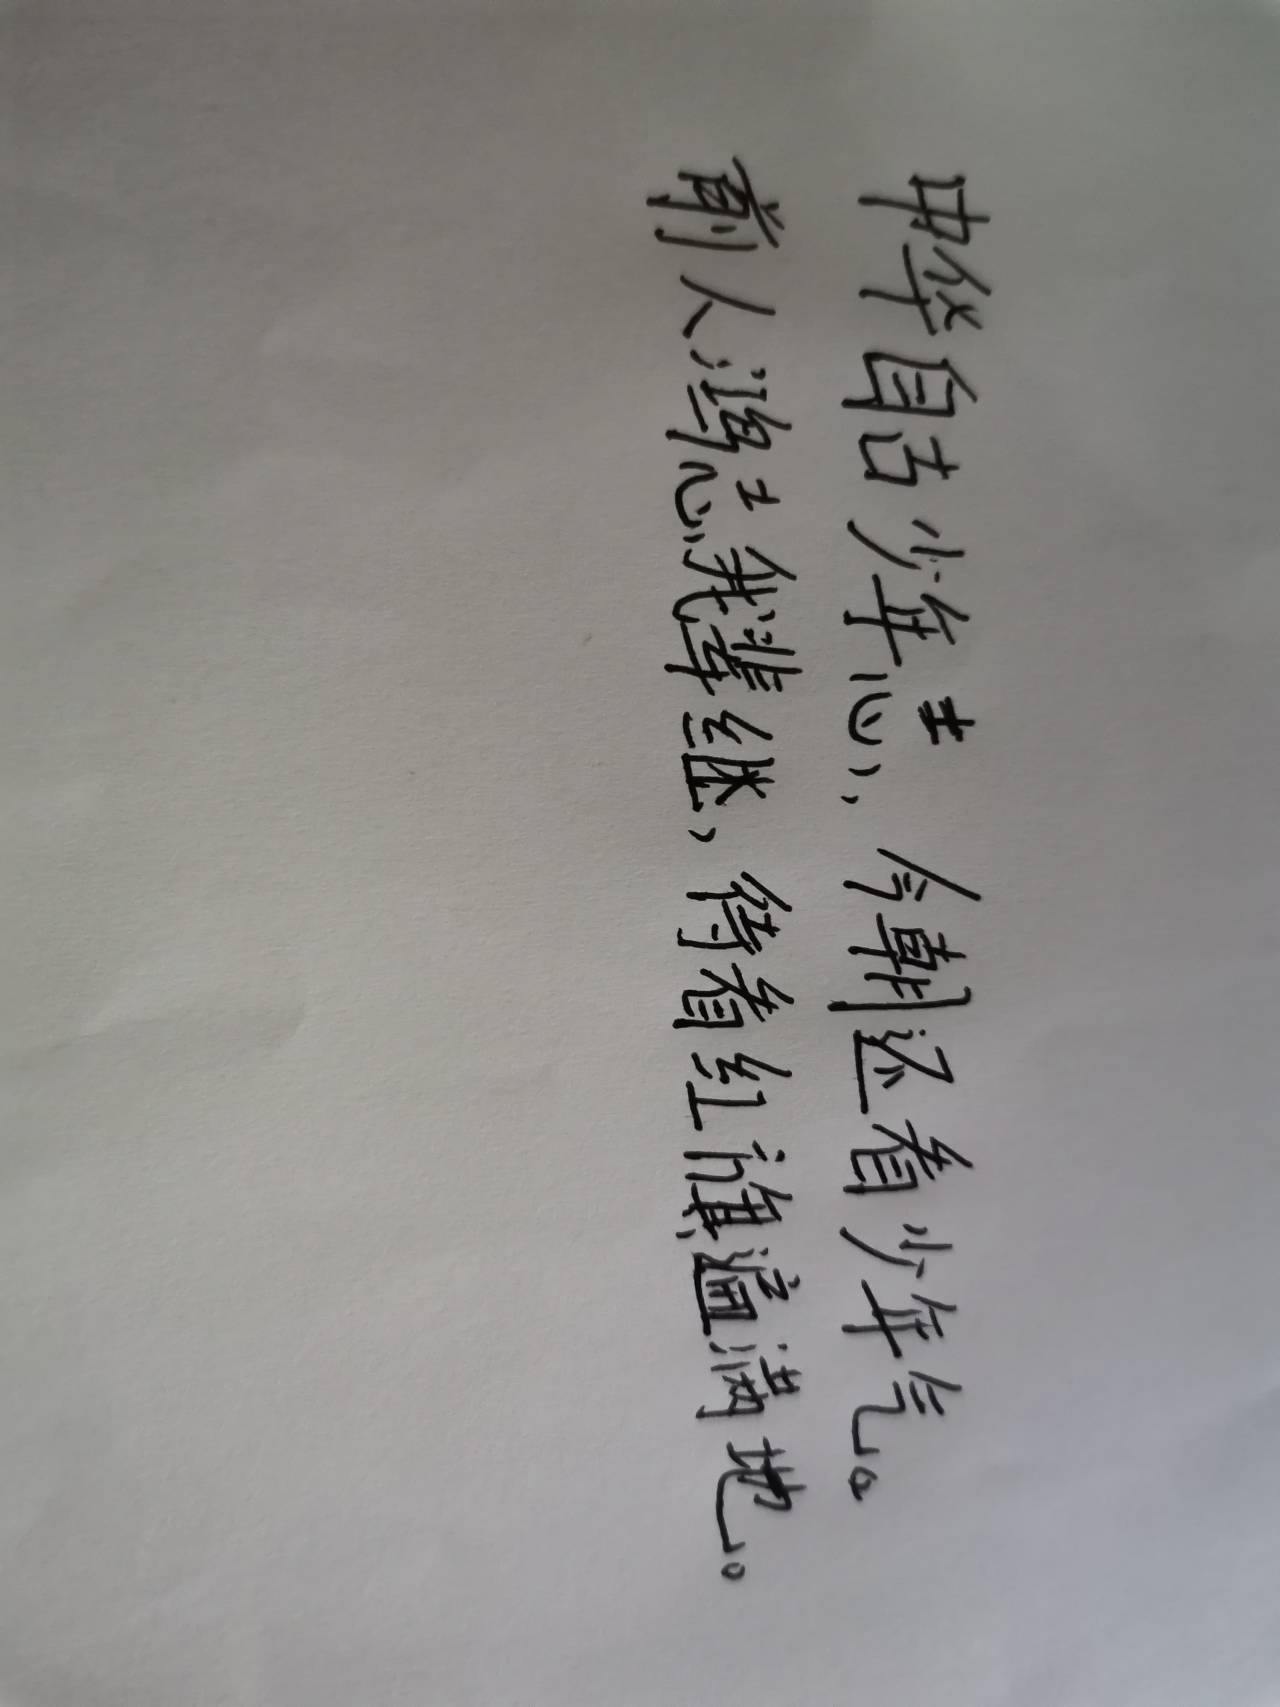 中华自古少年志，今朝还看少年气。
前人鸿志我辈继，待看红旗遍满地。